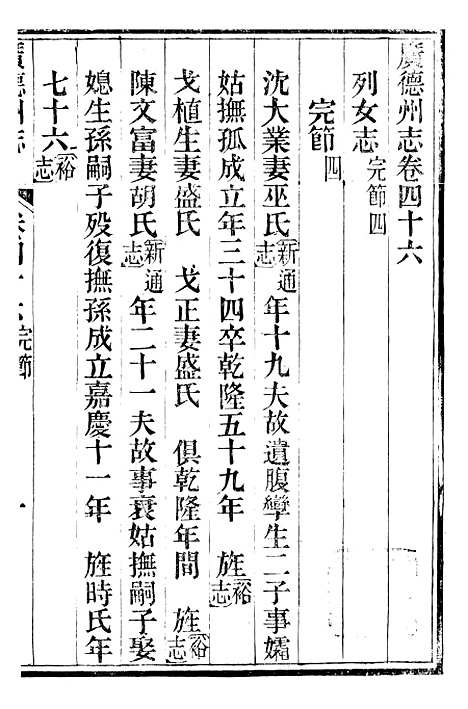 廣德州志卷四十六
列女志完節四
完節四
沈大業妻巫氏新通志年十九夫故遺腹孿生二子事孀
姑撫孤成立年三十四卒乾隆五十九年 旌裕志
戈植生妻盛氏 戈正妻盛氏 俱乾隆年間 旌裕志
陳文富妻胡氏新通志年二十一夫故事衰姑撫嗣子娶
媳生孫嗣子歿復撫孫成立嘉慶十一年 旌時氏年
七十六裕志
廣德州志 卷四十六完節 一